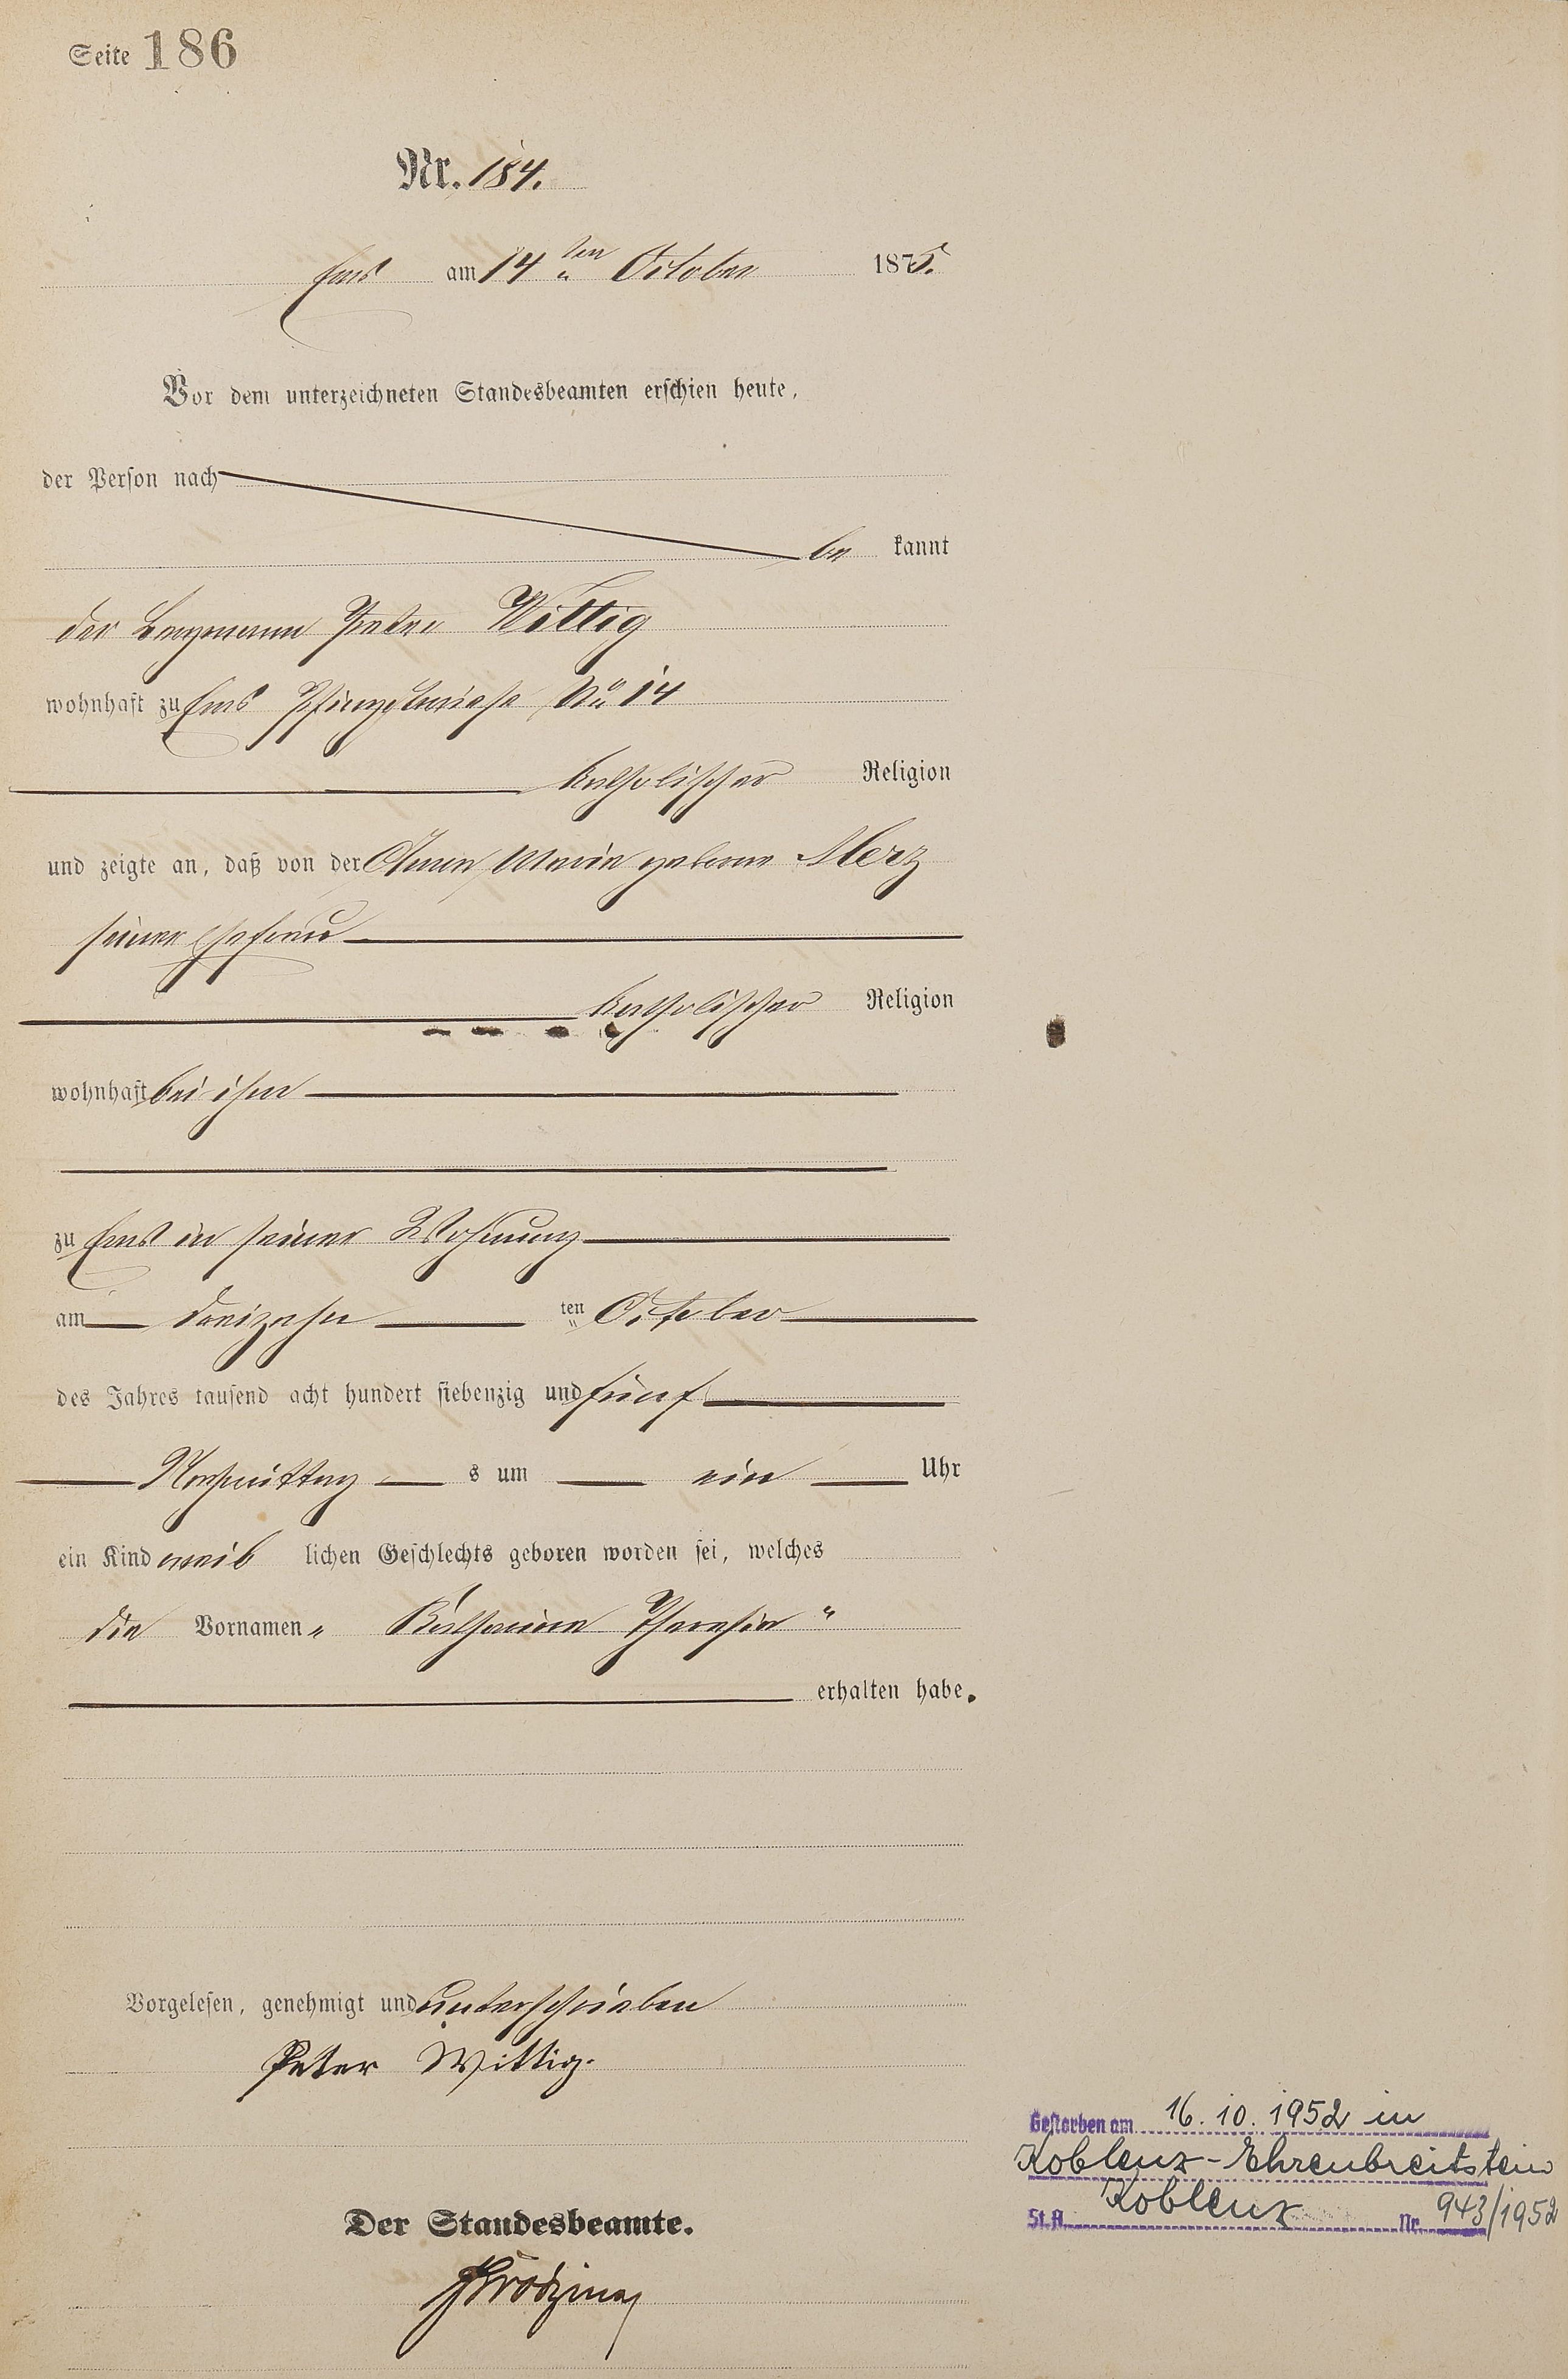 Seite 186
Nr. 184.
Ems am 14ten October 1875.
Vor dem unterzeichneten Standesbeamten erschien heute,
der Person nach
be kannt
der Bergmann Peter Wittig
wohnhaft zu Ems No 14
katholischer Religion
und zeigte an, daß von der Anna Maria geborne Merz
seiner Ehefrau
katholischer Religion
wohnhaft bei ihm
zu Ems in seiner Wohnung
am dreizehn ten October
des Jahres tausend acht hundert siebenzig und fünf
Nachmittag s um ein Uhr
ein Kind weib lichen Geschlechts geboren worden sei, welches
die Vornamen „ Katharina Theresia “
erhalten habe.
Vorgelesen, genehmigt und unterschrieben
Peter Wittig.
Der Standesbeamte.
Gestorben am 16.10.1952 in
Koblenz-Ehrenbreitstein
St.A. Koblenz Nr. 943/1952